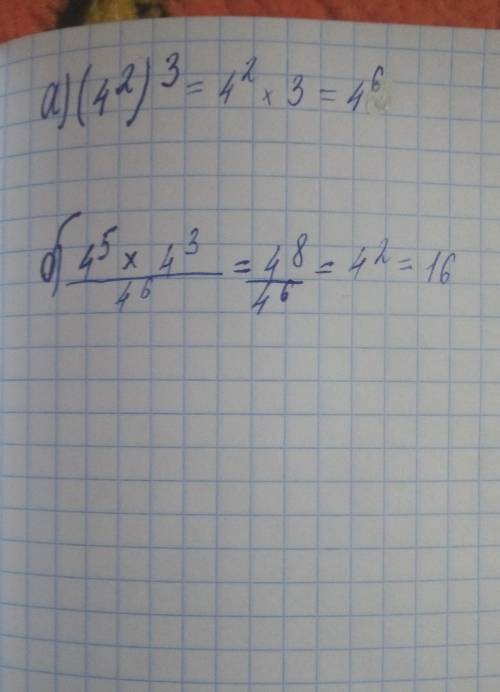 а) (4²)³ = 4² × 3 = 4⁶
б) 4⁵ × 4³ / 4⁶ = 4⁸ / 4⁶ = 4² = 16